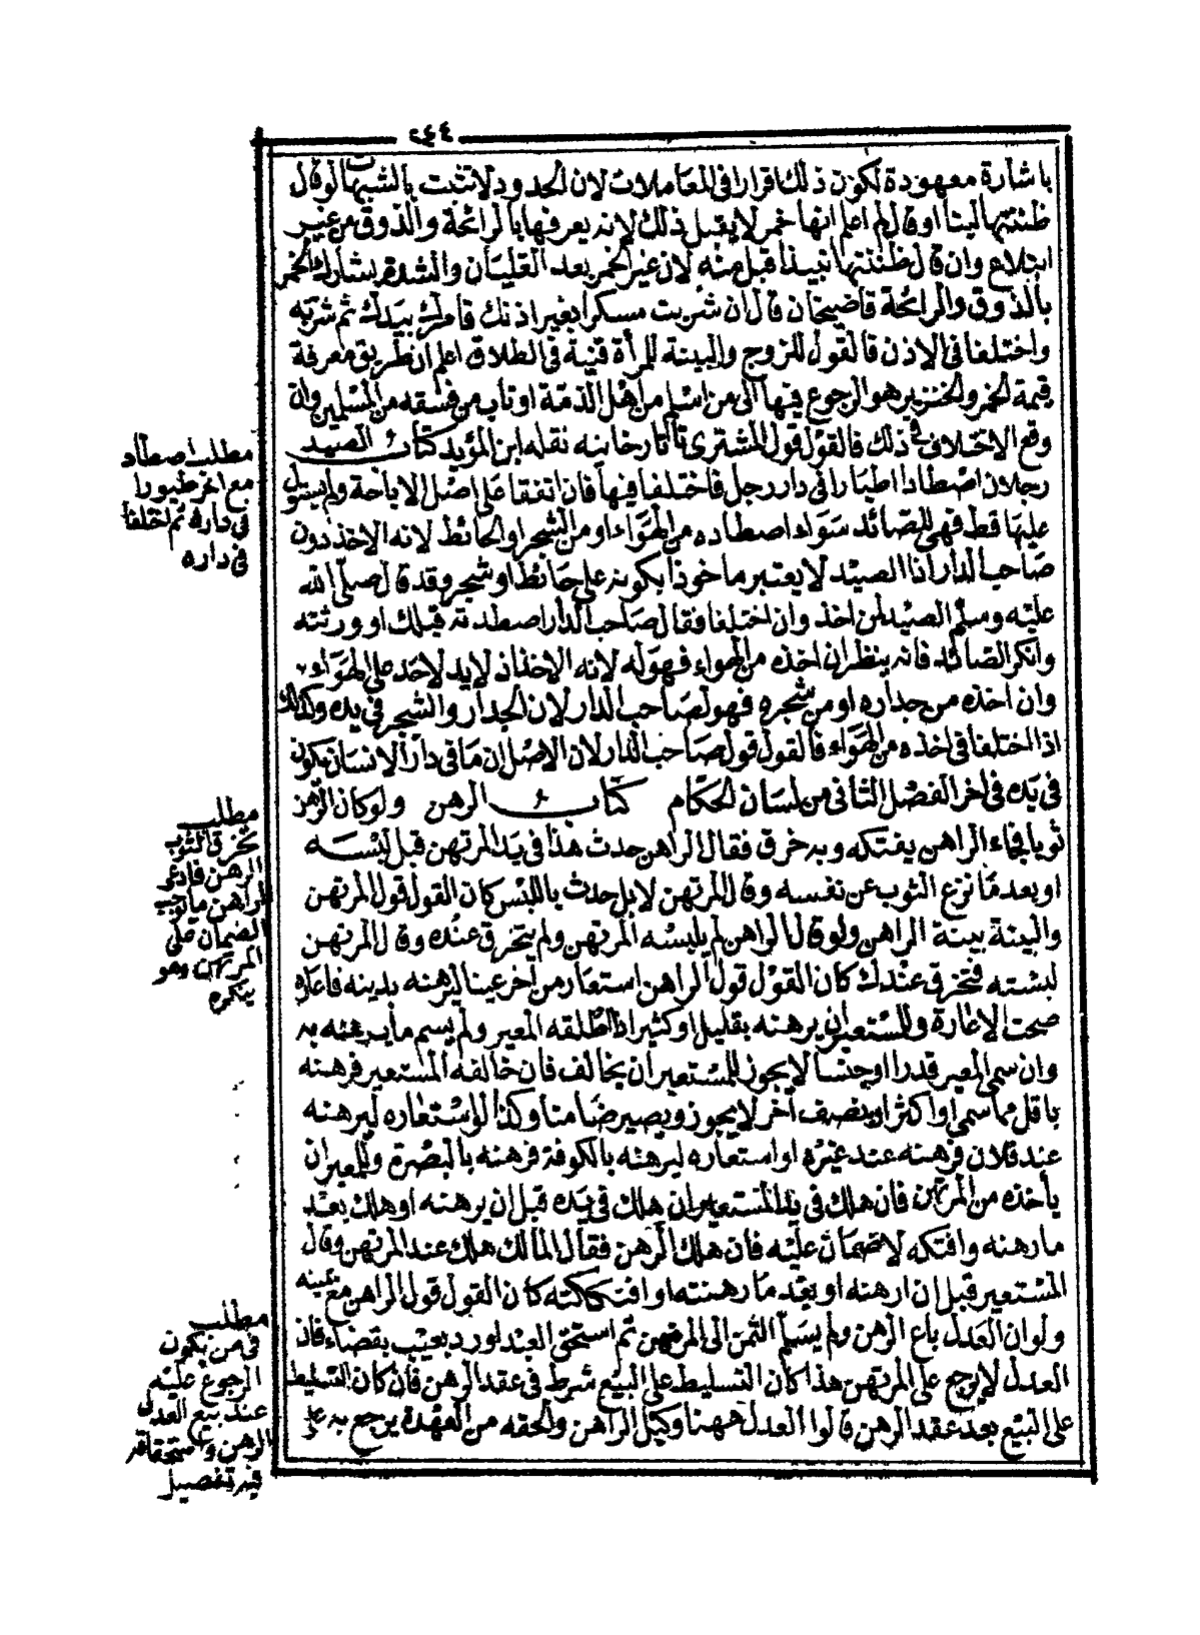 ٢٤٤
باشارة معهودة لكون ذلك اقرارا فى المعاملات لان الحدود لا تثبت بالشبهات لو قال
ظننتها لبنا او قال لم اعلم انها خمر لا يقبل ذلك لانه يعرفها بالرائحة والذوق من غير
ابتلاع وان قال ظننتها نبيذا قبل منه لان غير الخمر بعد الغليان والشدة يشارك الخمر
بالذوق والرائحة قاضيخان قال ان شربت مسكرا بغير اذنك فامرك بيدك ثم شربه
واختلفا فى الاذن فالقول للزوج والبينة للمرأة قنية فى الطلاق اعلم ان طريق معرفة
قيمة الخمر والخنزير هو الرجوع فيها الى من اسلم من اهل الذمة او تاب من فسقه من المسلمين وان
وقع الاختلاف فى ذلك فالقول قول المشترى تاتارخانيه نقله ابن المؤيد كتاب الصيد
رجلان اصطادا طيارا فى دار رجل فاختلفا فيها فان اتفقا على اصل الاباحة ولم يستول
عليها قط فهى للصائد سواء اصطاده من الهواء او من الشجر او الحائط لانه الاخذ دون
صاحب الدار اذا الصيد لا يعتبر ماخوذا بكونه على حائط او شجر وقد قال صلى الله
عليه وسلم الصيد لمن اخذ وان اختلفا فقال صاحب الدار اصطدته قبلك او ورثته
وانكر الصائد فانه ينظر ان اخذه من الهواء فهو له لانه الاخذ اذ لا يد لاحد على الهواء
وان اخذه من جداره او من شجره فهو لصاحب الدار لان الجدار والشجر فى يده وكذلك
اذا اختلفا فى اخذه من الهواء فالقول قول صاحب الدار لان الاصل ان ما فى دار الانسان يكون
فى يده فى اخر الفصل الثانى من لسان الحكام كتاب الرهن ولو كان الرهن
ثوبا فجاء الراهن يفتكه وبه خرق فقال الراهن حدث هذا فى يد المرتهن قبل لبسه
او بعد ما نزع الثوب عن نفسه وقال المرتهن لا بل حدث باللبس كان القول قول المرتهن
والبينة بينة الراهن ولو قال الراهن لم يلبسه المرتهن ولم يتخرق عنده وقال المرتهن
لبسته فتخرق عندك كان القول قول الراهن استعار من اخر عينا ليرهنه بدينه فاعاره
صحت الاعارة وللمستعير ان يرهنه بقليل او كثير اذا اطلقه المعير ولم يسم ما يرهنه به
وان سمى المعير قدرا او جنسا لا يجوز للمستعير ان يخالف فان خالفه المستعير فرهنه
باقل مما سمى او اكثر او بصنف آخر لا يجوز ويصير ضامنا وكذا لو استعاره ليرهنه
عند فلان فرهنه عند غيره او استعاره ليرهنه بالكوفة فرهنه بالبصرة وللمعير ان
يأخذه من المرتهن فان هلك فى يد المستعير ان هلك فى يده قبل ان يرهنه او هلك بعد
ما رهنه وافتكه لا ضمان عليه فان هلك الرهن فقال المالك هلك عند المرتهن وقال
المستعير قبل ان ارهنه او بعد ما رهنته وافتككته كان القول قول الراهن مع يمينه
ولو ان العدل باع الرهن ولم يسلم الثمن الى المرتهن ثم استحق العبد او رد بعيب بقضاء فان
العدل لا يرجع على المرتهن هذا كان التسليط على البيع شرط فى عقد الرهن فان كان التسليط
على البيع بعد عقد الرهن قالوا العدل ههنا وكيل الراهن والحقه من العهدة يرجع به على
مطلب اصطاد
مع اخر طيورا
فى داره ثم اختلفا
فى داره
مطلب
تخرق الثوب
الرهن فادعى
الراهن ما يوجب
الضمان على
المرتهن وهو
ينكره
مطلب
فى من يكون
الرجوع عليه
عند بيع العدل
الرهن واستحقاقه
فيه تفصيل